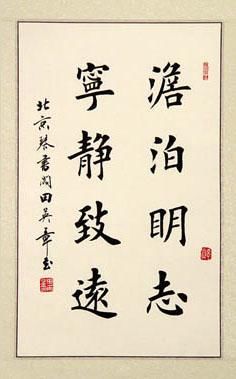 澹泊明志
寧静致遠
北京琴書閣田英章书